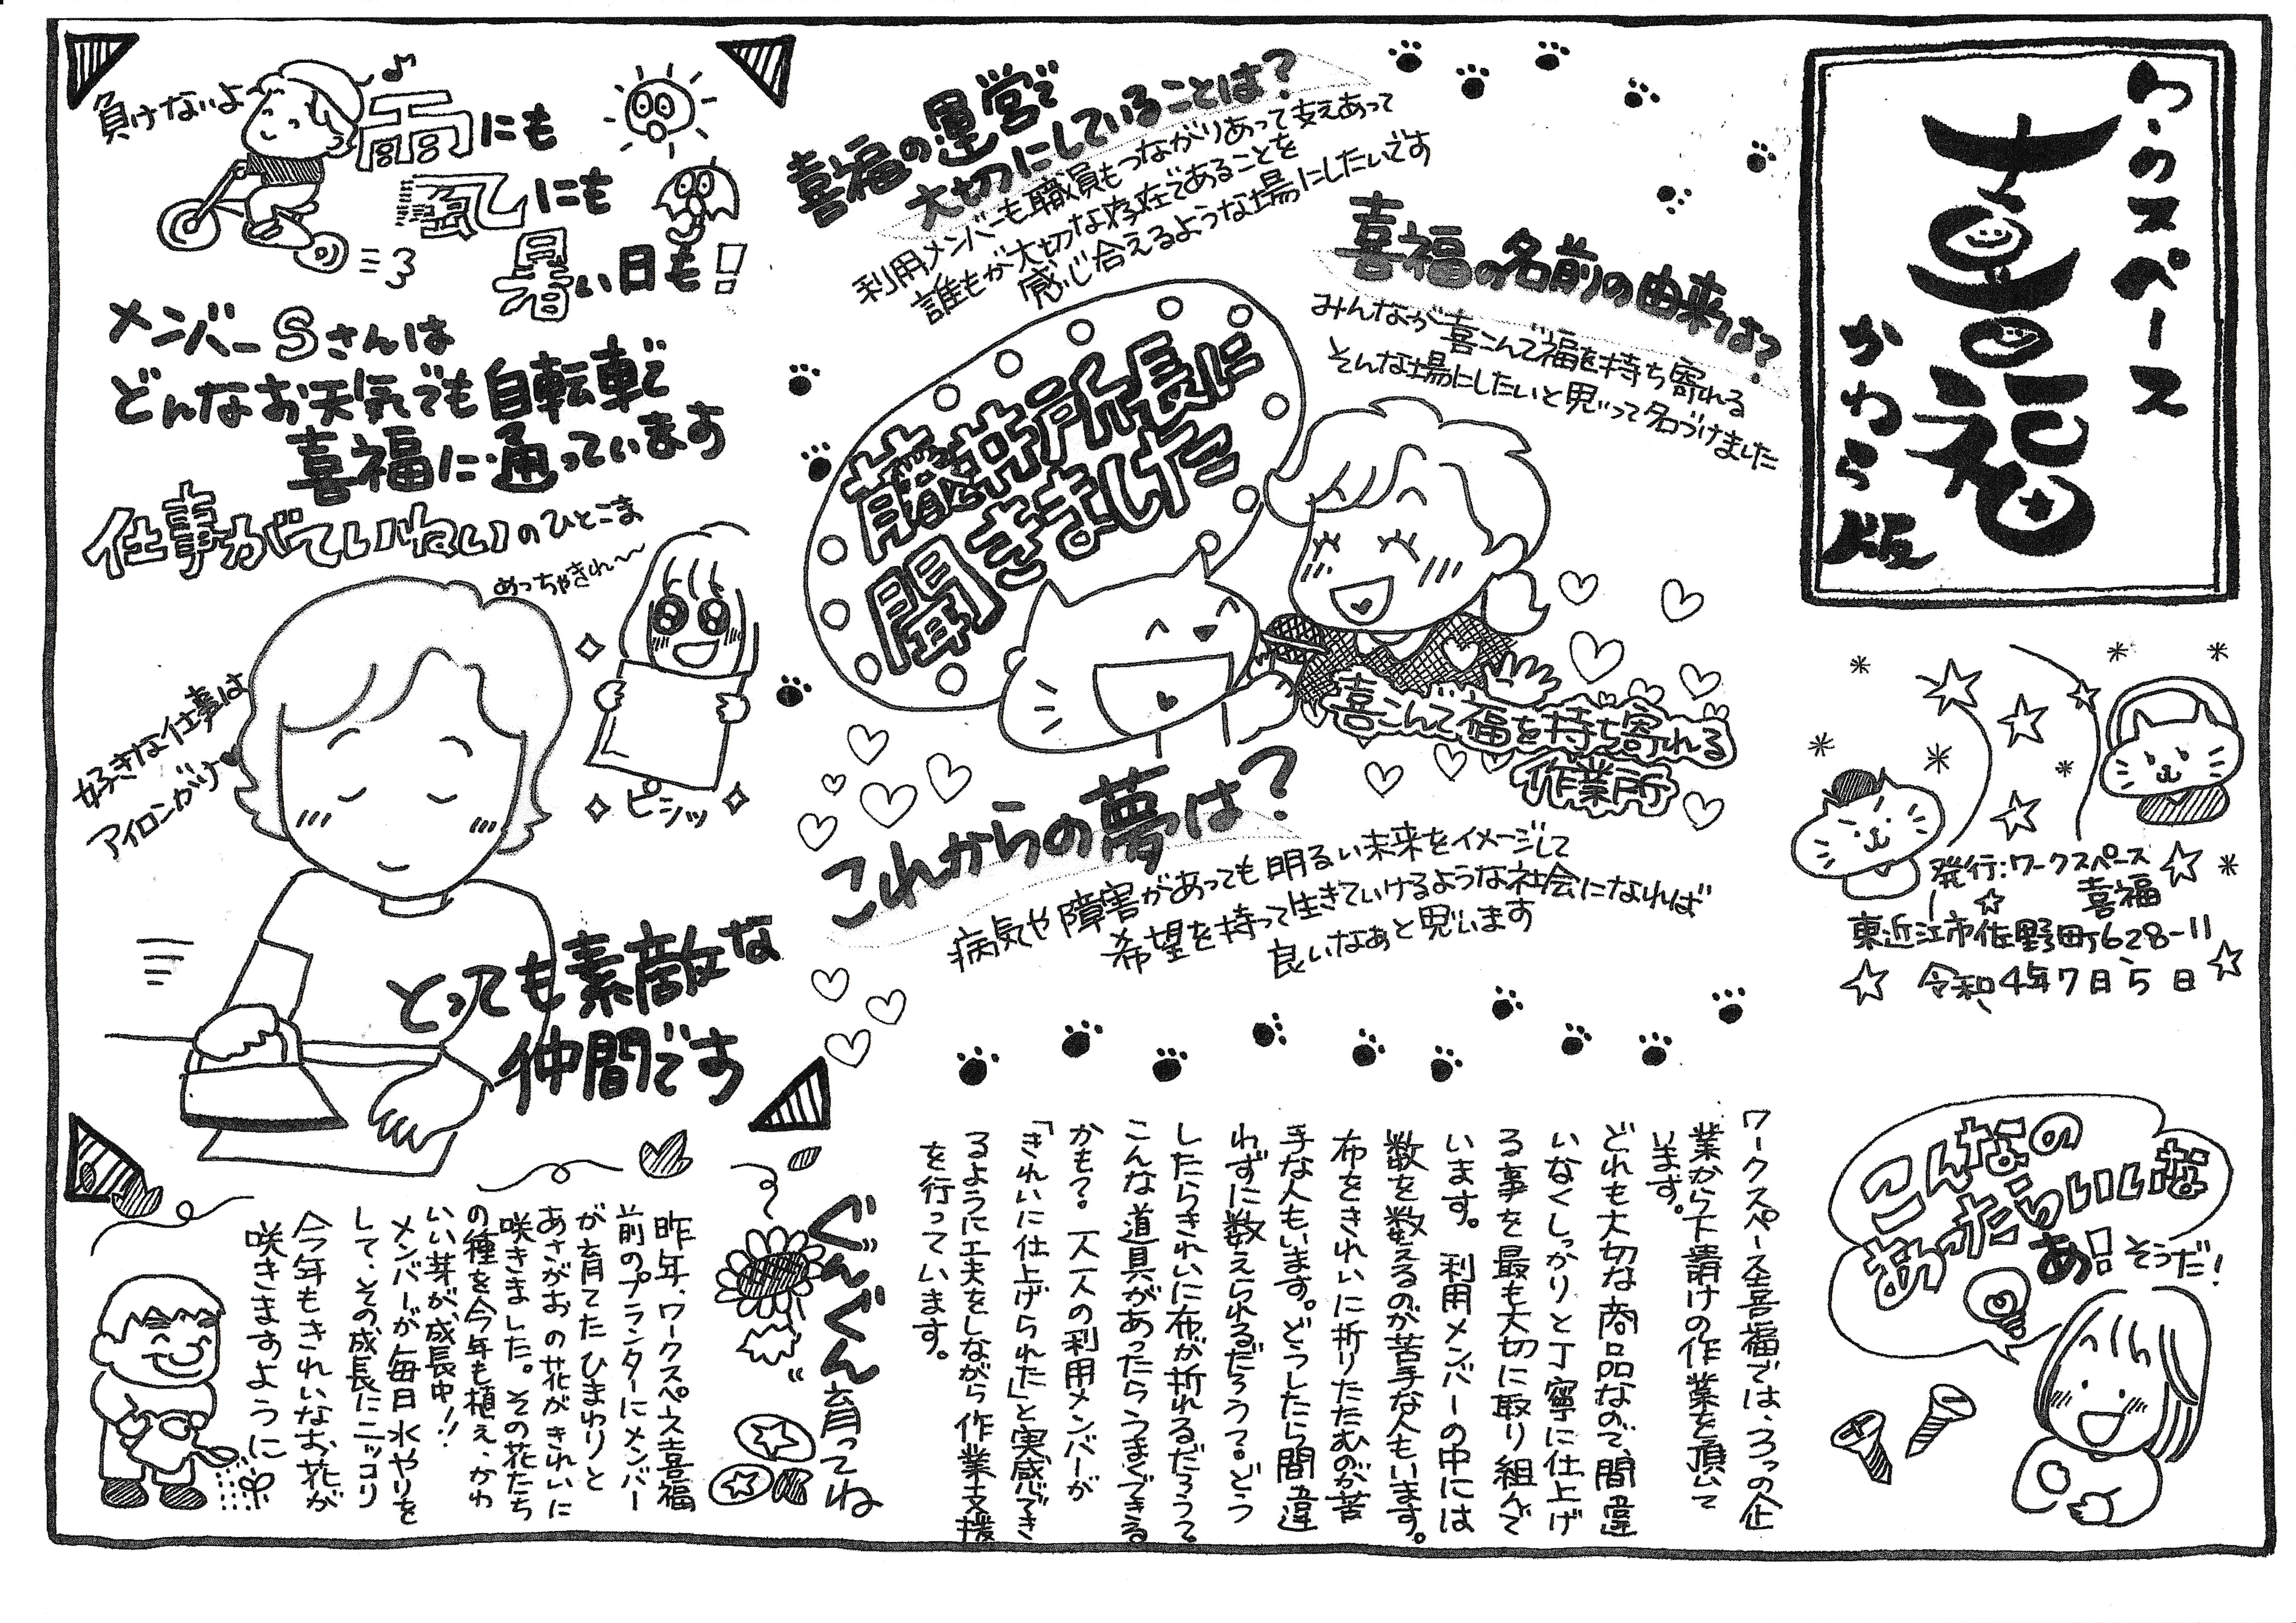 わーくスペース
喜福
かわら版
発行:ワークスペース
喜福
東近江市佐野町628-11
令和4年7月5日
喜福の運営で
大切にしていることは?
利用メンバーも職員もつながりあって支えあって
誰もが大切な存在であることを
感じ合えるような場にしたいです
喜福の名前の由来は?
みんなが喜こんで福を持ち寄れる
そんな場にしたいと思って名づけました
藤井所長に
聞きまけた
喜こんで福を持ち寄れる
作業所
これからの夢は?
病気や障害があっても明るい未来をイメージして
希望を持って生きていけるような社会になれば
良いなぁと思います
負けないよ〜♪
雨にも
風にも
暑い日も!
メンバーSさんは
どんなお天気でも自転車で
喜福に通っています
仕事がていねいのひとこま
めっちゃきれ〜
ピシッ
好きな仕事は
アイロンがけ
とっても素敵な
仲間です
こんなの
あったらいいな
あ!そうだ!
ワークスペース喜福では、3つの企
業から下請けの作業を頂いて
います。
どれも大切な商品なので、間違
いなくしっかりと丁寧に仕上げ
る事を最も大切に取り組んで
います。利用メンバーの中には
数を数えるのが苦手な人もいます。
布をきれいに折りたたむのが苦
手な人もいます。どうしたら間違
わずに数えられるだろう?どう
したらきれいに布が折れるだろう?
こんな道具があったらうまくできる
かも?一人一人の利用メンバーが
「きれいに仕上げられた」と実感でき
るように工夫をしながら作業支援
を行っています。
ぐんぐん育ってね
昨年、ワークスペース喜福
前のプランターにメンバー
が育てたひまわりと
あさがおの花がきれいに
咲きました。その花たち
の種を今年も植え、かわ
いい芽が、成長中!!
メンバーが毎日水やりを
して、その成長にニッコリ
今年もきれいなお花が
咲きますように